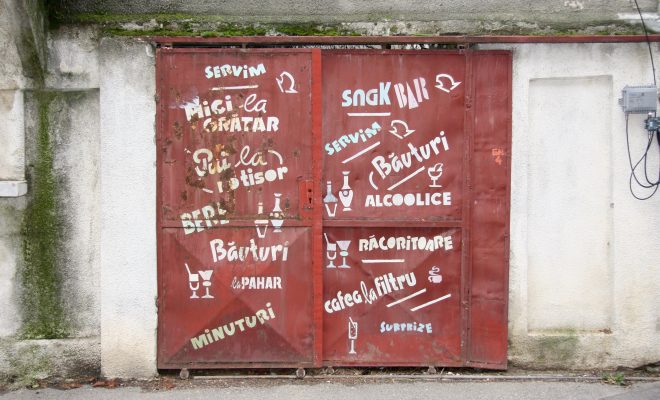 SERVIM
MICI la
GRĂTAR
Pui la
rotisor
BERE
Băuturi
la PAHAR
MINUTURI
SNaK BAR
SERVIM
Băuturi
ALCOOLICE
RĂCORITOARE
cafea la filtru
SURPRIZE